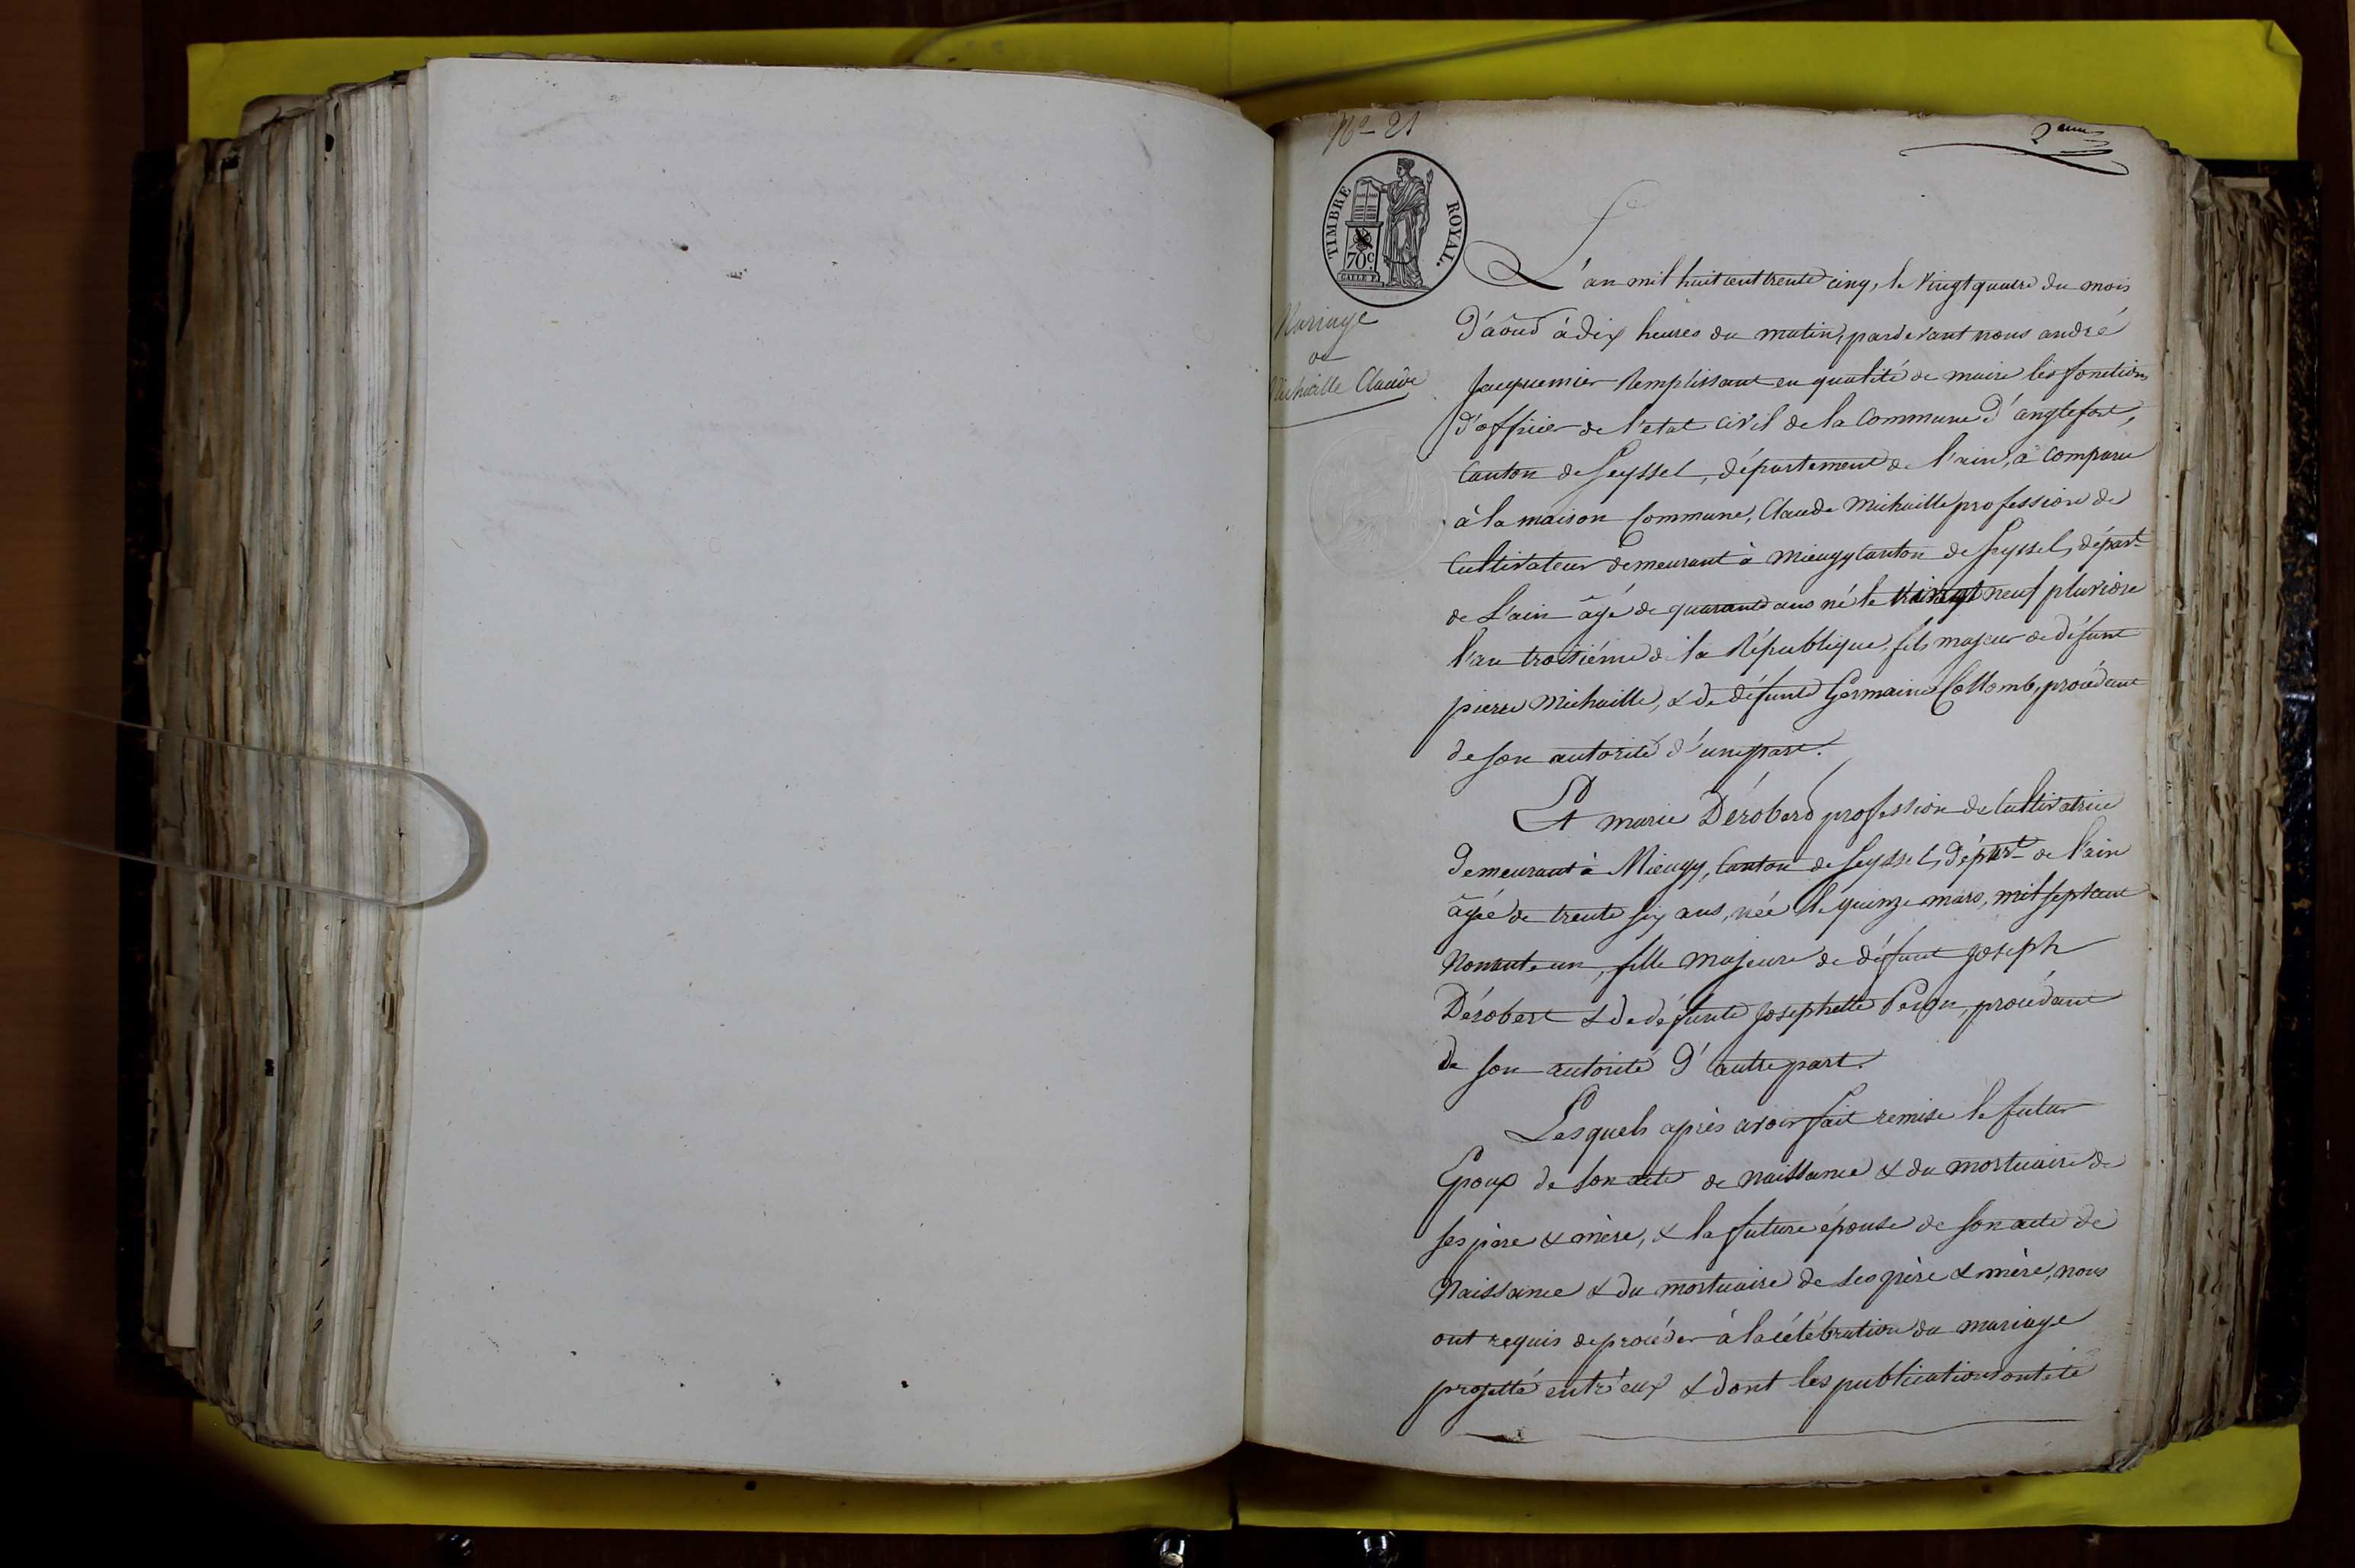 No 21
2eme
TIMBRE ROYAL.
70c
Mariage
de
Michaille Claude
L'an mil huit cent trente cinq, le vingt quatre du mois
d'août à dix heures du matin, pardevant nous andré
Jacquemier Remplissant en qualité de maire les fonctions
d'officier de l'etat civil de la Commune d'anglefort,
Canton de Seyssel, département de l'ain, à comparu
à la maison Commune, Claude Michaille profession de
Cultivateur demeurant à Mieugy Canton de Seyssel, départ-
de L'ain âgé de quarante ans né le vingt neuf pluviose
l'an troisiéme de la République, fils majeur de défunt
pierre Michaille, & de défunte Germaine Collomb, procédant
de son autorité d'une part.
Et marie Dérobert profession de Cultivatrice
demeurant à Mieugy, Canton de Seyssel, départ- de l'ain
âgée de trente six ans, née le quinze mars, mil sept cent
Nonante un, fille majeure de défunt Joseph
Dérobert & de défunte Josephette procédant
de son autorité d'autre part.
Lesquels après avoir fait remise le futur
Epoux de son acte de naissance & du mortuaire de
ses père & mère, & la future épouse de son acte de
Naissance & du mortuaire de ses père & mère, nous
ont requis de procéder à la célébration du mariage
projetté entr'eux & dont les publications ont été